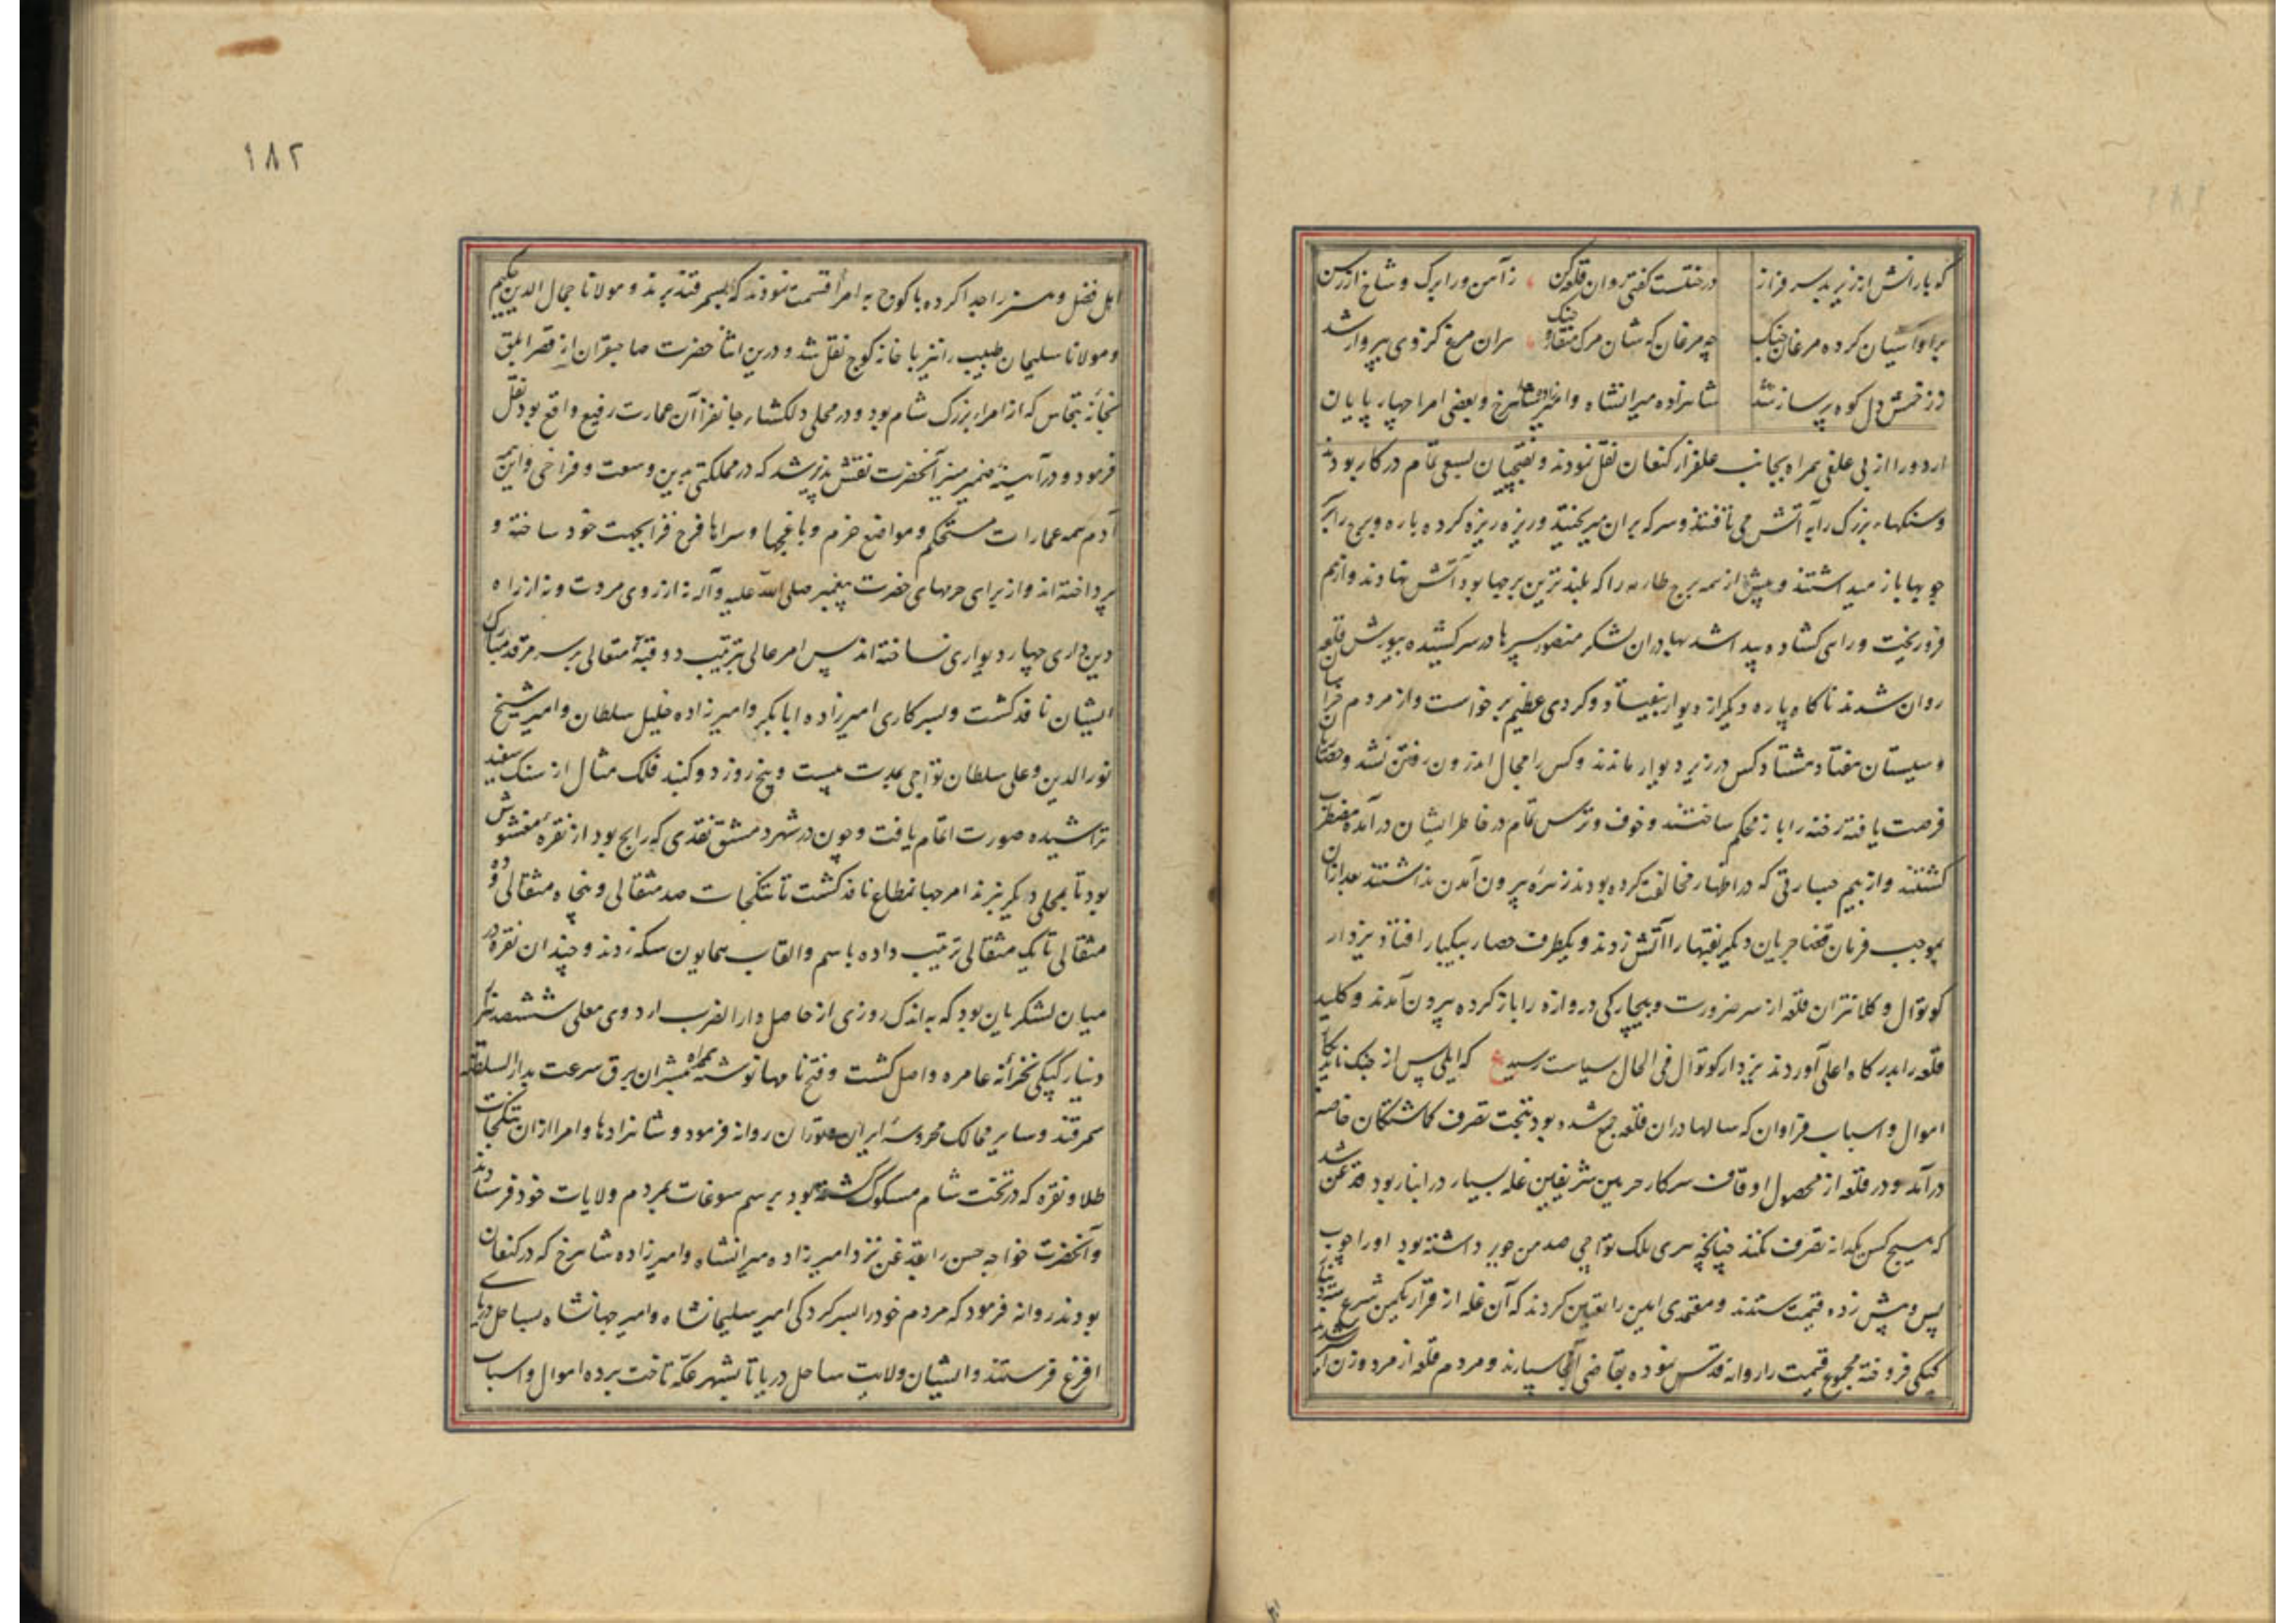 که بارانش از زیر بد سرفراز
درختست گفتی روان قلعه کن زآهن ورا برگ و شاخ از رسن
برو آشیان کرده مرغان جنگ
چه مرغان که شان مرگ منقار و چنگ سران مرغ کز وی بپرواز شد
ز زخمش دل کوه پر ساز شد
شاهزاده میرانشاه و امیرزاده شاهرخ و بعضی امرا چهارپایان
اردو را از بی علفی همراه بجانب علفزار کنعان نقل نمودند و نقبچیان بسعی تمام در کار بودند
و سنگهاء بزرگ را به آتش می تافتند و سرکه بران میریختند و ریزه ریزه کرده باره و برج را بر
چوبها باز میداشتند و پیش از همه برج طارمه را که بلندترین برجها بود آتش نهادند و از هم
فرو ریخت و راهی گشاده پیدا شد بهادران لشکر منصور سپرها در سر کشیده بیورش قلعه
روان شدند ناگاه پاره دیگر از دیوار بیفتاد و گردی عظیم برخواست و از مردم خراسان
و سیستان هفتاد هشتاد کس در زیر دیوار ماندند و کس را مجال اندرون رفتن نشد و حصاریان
فرصت یافته رخنه را باز محکم ساختند و خوف و ترس تمام در خاطر ایشان درآمده مضطرب
گشتند و از بیم جسارتی که در اظهار مخالفت کرده بودند زهره بیرون آمدن نداشتند بعد ازان
بموجب فرمان قضا جریان دیگر نقبها را آتش زدند و یکطرف حصار بیکبار افتاد یزدار
کوتوال و کلانتران قلعه از سر ضرورت و بیچارگی دروازه را باز کرده بیرون آمدند و کلید
قلعه را بدرگاه اعلی آوردند یزدار کوتوال فی الحال بسیاست رسید ع که ایلی پس از جنگ ناید بکار
اموال و اسباب فراوان که سالها دران قلعه جمع شده بود بتحت تصرف گماشتگان خاصه
درآمد و در قلعه از محصول اوقاف سرکار حرمین شریفین غله بسیار در انبار بود قدغن شد
که هیچ کس یکدانه تصرف نکند چنانچه هری ملک تواچی صد من جو برداشته بود او را چوب
پس و پیش زده قیمت ستدند و معتمدی امین را تعیین کردند که آن غله از قرار یکمن شرع بسه دینار
کپکی فروخته مجموع قیمت را روانه قدس نموده بقاضی آنجا سپارند و مردم قلعه از مرد و زن
اهل فضل و هنر را جدا کرده با کوچ به امرا قسمت نمودند که بسمرقند برند و مولانا جمال الدین حکیم
و مولانا سلیمان طبیب را نیز با خانه کوچ نقل شد و درین اثنا حضرت صاحبقران از قصر ابلق
بخانه بتخاس که از امراء بزرگ شام بود و در محلی دلگشا و جانفزا آن عمارت رفیع واقع بود نقل
فرمود و در آیینه ضمیر منیر آنحضرت نقش پذیر شد که در مملکتی بدین وسعت و فراخی و این همه
آدم همه عمارات مستحکم و مواضع خرم و باغچها و سراها فرح فزا بجهت خود ساخته و
پرداخته اند و از برای حرمهای حضرت پیغمبر صلی الله علیه و آله نه از روی مردت و نه از راه
دین داری چهار دیواری نساخته اند پس امر عالی بترتیب دو قبه متعالی بر سر مرقد مبارک
ایشان نافذ گشت و بسرکاری امیرزاده ابابکر و امیرزاده خلیل سلطان و امیر شیخ
نورالدین و علی سلطان تواجی بمدت بیست و پنج روز دو گنبد فلک مثال از سنگ سفید
تراشیده صورت اتمام یافت و چون در شهر دمشق نقدی که رایج بود از نقره مغشوش
بود تا بمحلی دیگر نبرند امر جهانمطاع نافذ گشت تا تنکجات صد مثقالی و پنجاه مثقالی و ده
مثقالی تا یک مثقالی ترتیب داده باسم و القاب همایون سکه زدند و چندان نقره در
میان لشکریان بود که به اندک روزی از حاصل دارالضرب اردوی معلی ششصد هزار
دینار کپکی بخزانه عامره واصل گشت و فتح نامها نوشته همراه مبشران برق سرعت بدارالسلطنه
سمرقند و سایر ممالک محروسه ایران و توران روانه فرمود و شاهزادها و امرا ازان تنکجات
طلا و نقره که در تخت شام مسکوک گشته بود برسم سوغات بمردم ولایات خود فرستادند
و آنحضرت خواجه حسن را بقدغن نزد امیرزاده میرانشاه و امیرزاده شاهرخ که در کنعان
بودند روانه فرمود که مردم خود را بسرکردگی امیر سلیمانشاه و امیر جهانشاه بساحل دریای
افرنج فرستند و ایشان ولایت ساحل دریا تا بشهر عکه تاخت برده اموال و اسباب
۱۸۲